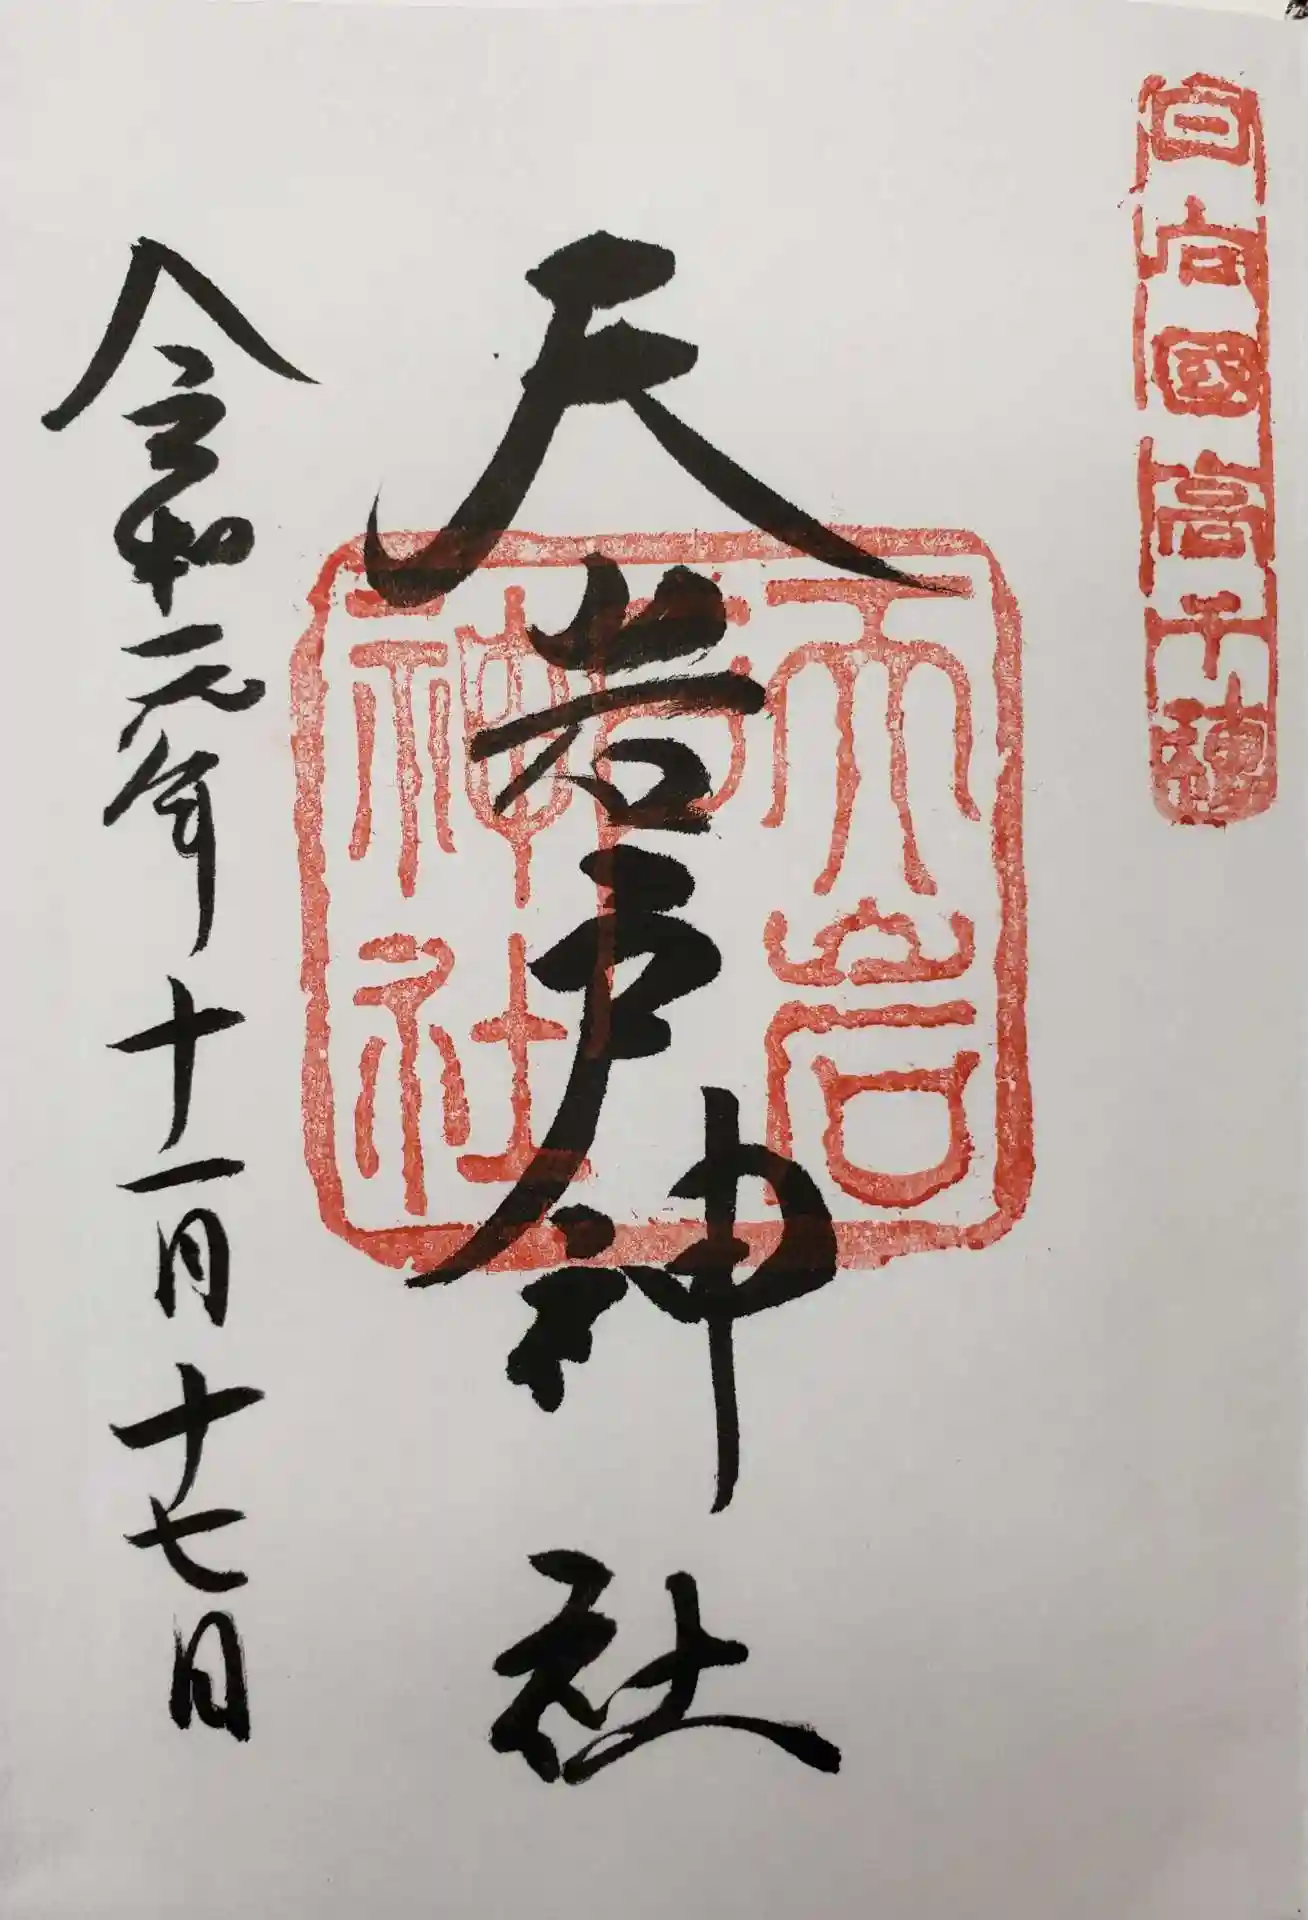 日向國高千穂
天岩戸神社
天岩戸神社
令和元年十一月十七日